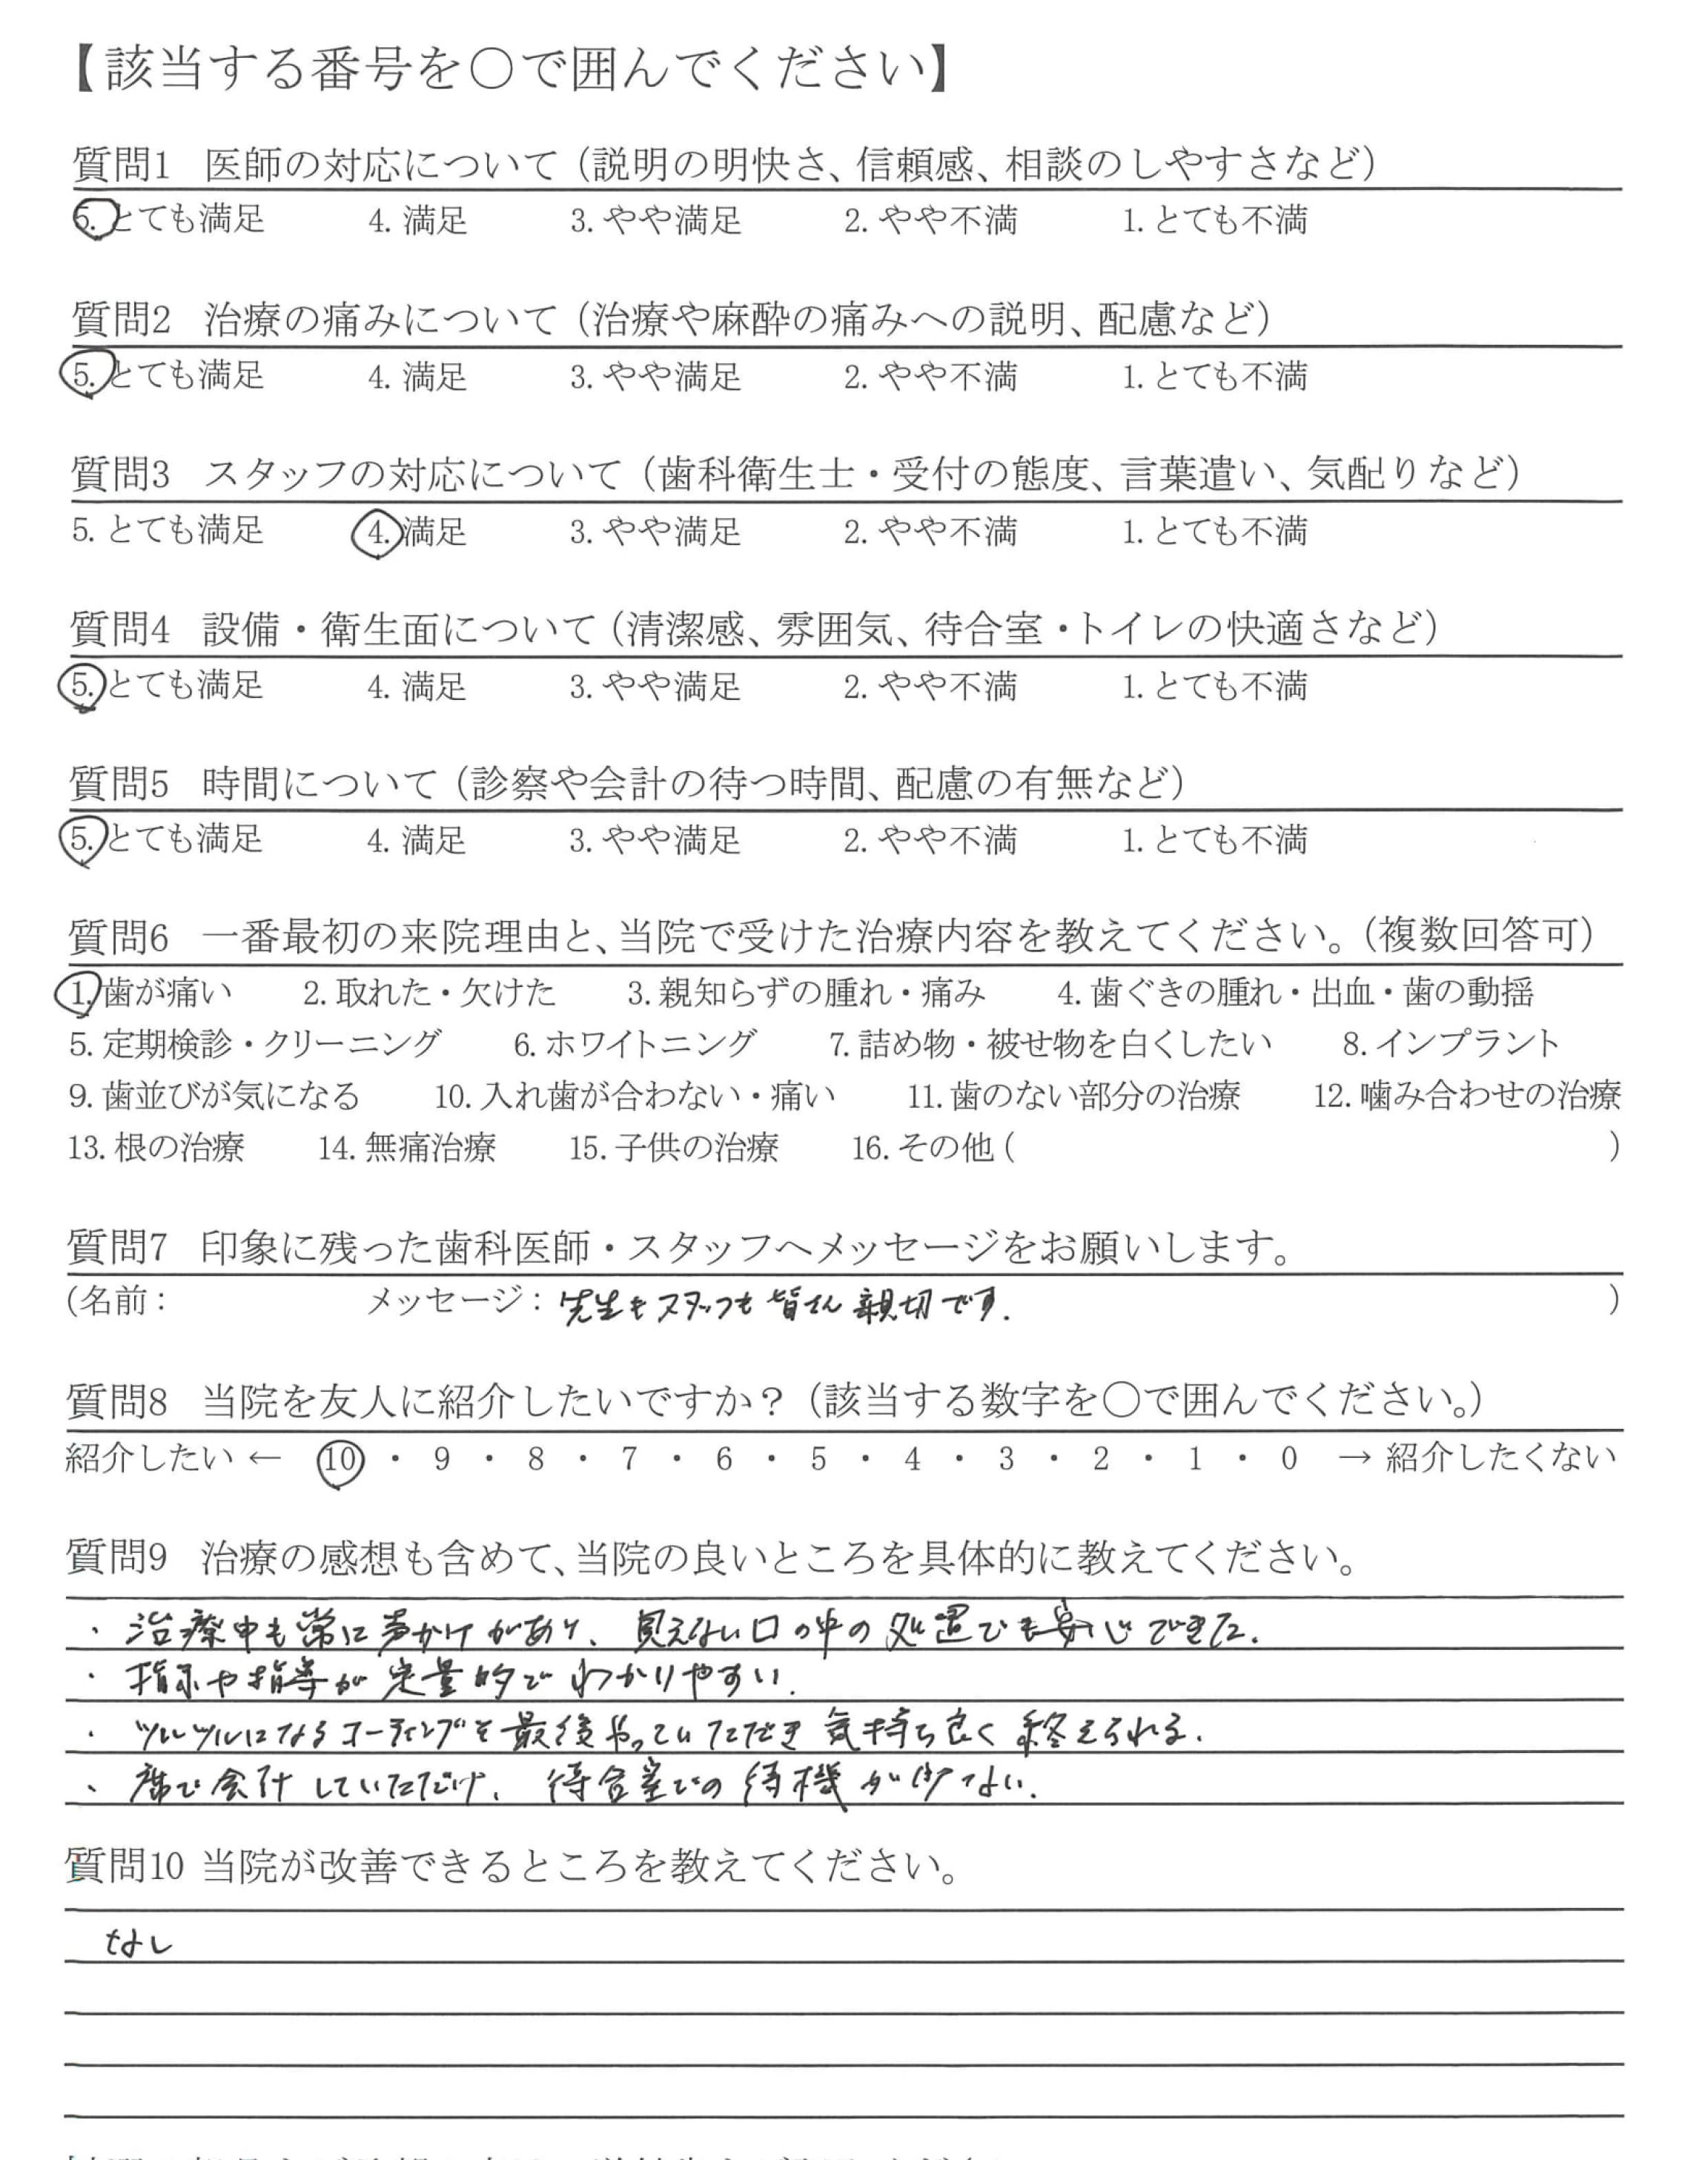 【該当する番号を○で囲んでください】
質問1 医師の対応について（説明の明快さ、信頼感、相談のしやすさなど）
5. とても満足 4. 満足 3. やや満足 2. やや不満 1. とても不満
質問2 治療の痛みについて（治療や麻酔の痛みへの説明、配慮など）
5. とても満足 4. 満足 3. やや満足 2. やや不満 1. とても不満
質問3 スタッフの対応について（歯科衛生士・受付の態度、言葉遣い、気配りなど）
5. とても満足 4. 満足 3. やや満足 2. やや不満 1. とても不満
質問4 設備・衛生面について（清潔感、雰囲気、待合室・トイレの快適さなど）
5. とても満足 4. 満足 3. やや満足 2. やや不満 1. とても不満
質問5 時間について（診察や会計の待つ時間、配慮の有無など）
5. とても満足 4. 満足 3. やや満足 2. やや不満 1. とても不満
質問6 一番最初の来院理由と、当院で受けた治療内容を教えてください。（複数回答可）
1. 歯が痛い 2. 取れた・欠けた 3. 親知らずの腫れ・痛み 4. 歯ぐきの腫れ・出血・歯の動揺
5. 定期検診・クリーニング 6. ホワイトニング 7. 詰め物・被せ物を白くしたい 8. インプラント
9. 歯並びが気になる 10. 入れ歯が合わない・痛い 11. 歯のない部分の治療 12. 噛み合わせの治療
13. 根の治療 14. 無痛治療 15. 子供の治療 16. その他 ( )
質問7 印象に残った歯科医師・スタッフへメッセージをお願いします。
(名前： メッセージ： 先生もスタッフも皆さん親切です. )
質問8 当院を友人に紹介したいですか？（該当する数字を○で囲んでください。）
紹介したい ← 10 ・ 9 ・ 8 ・ 7 ・ 6 ・ 5 ・ 4 ・ 3 ・ 2 ・ 1 ・ 0 → 紹介したくない
質問9 治療の感想も含めて、当院の良いところを具体的に教えてください。
・治療中も常に声かけがあり、見えない口の中の処置でも安心できた.
・指示や指導が定量的でわかりやすい.
・ツルツルになるコーティングを最後やっていただき気持ち良く終えられる.
・席で会計していただけ、待合室での待機が少ない.
質問10 当院が改善できるところを教えてください。
なし